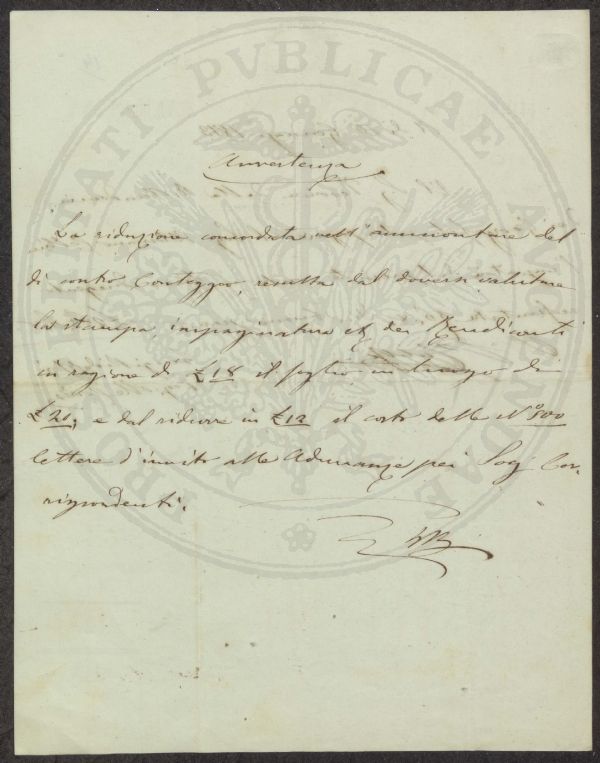 PROSPERITATI PVBLICAE AVGENDAE
Avvertenza
La riduzione concordata nell'ammontare del
di contro Conteggio, resulta dal doversi valutare
la stampa, impaginatura &c dei Rendiconti
in ragione di £18 il foglio in luogo di
£20; e dal ridurre in £12 il costo delle N.º 500
lettere d'invito alle Adunanze pei Socj Cor-
rispondenti.